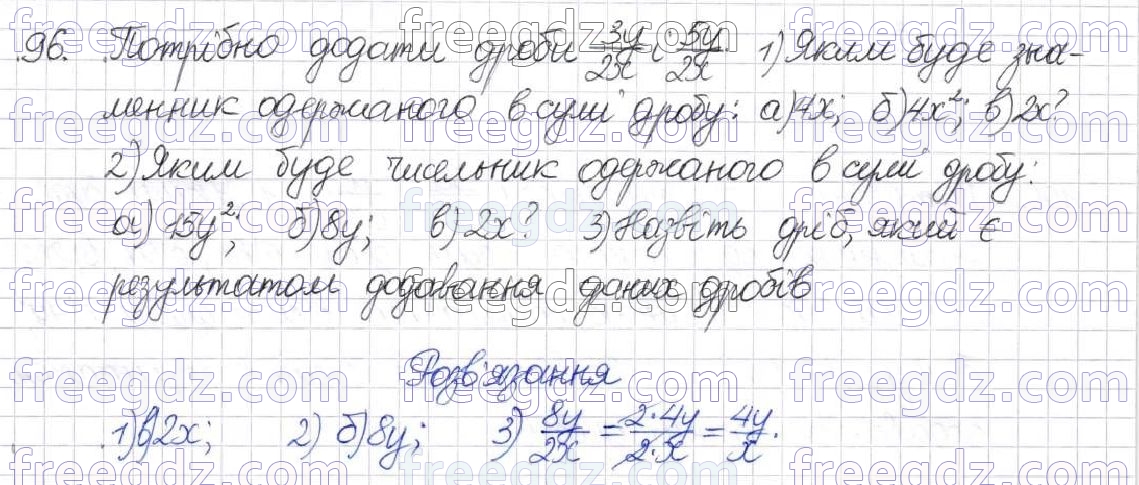 96. Потрібно додати дроби 3y/2x і 5y/2x. 1) Яким буде зна-
менник одержаного в сумі дробу: а) 4x; б) 4x²; в) 2x?
2) Яким буде чисельник одержаного в сумі дробу:
а) 15y²; б) 8y; в) 2x? 3) Назвіть дріб, який є
результатом додавання даних дробів
Розв'язання
1) в) 2x; 2) б) 8y; 3) 8y/2x = 2·4y/2·x = 4y/x.
freegdz.com